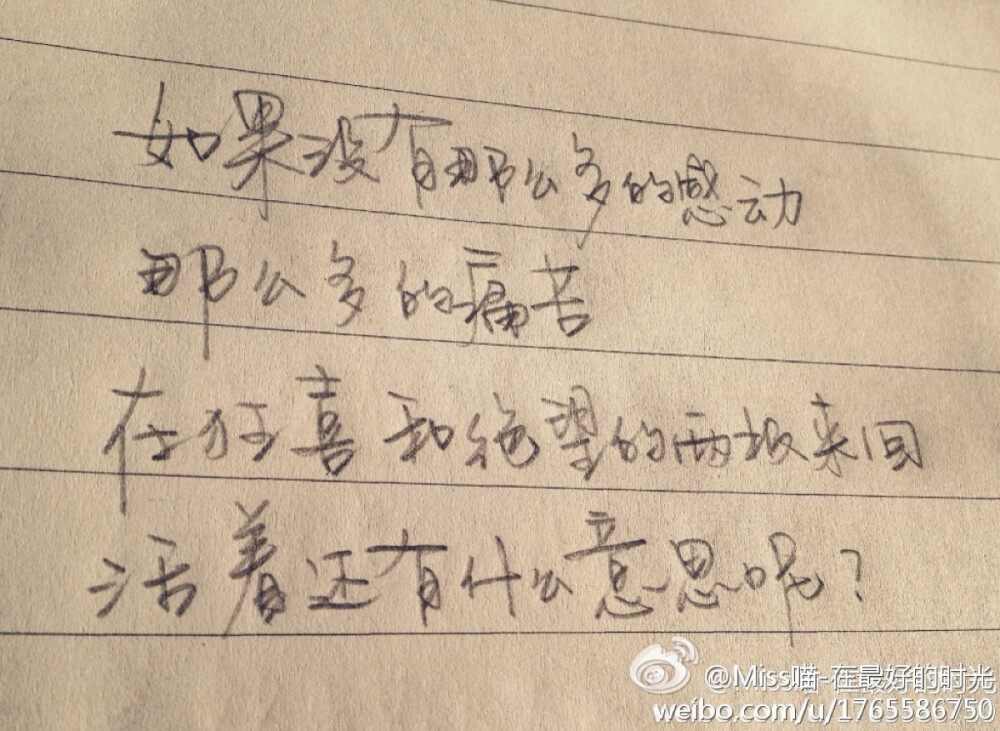 如果没有那么多的感动
那么多的痛苦
在狂喜和绝望的两极来回
活着还有什么意思呢?
@Miss喵-在最好的时光
weibo.com/u/1765586750